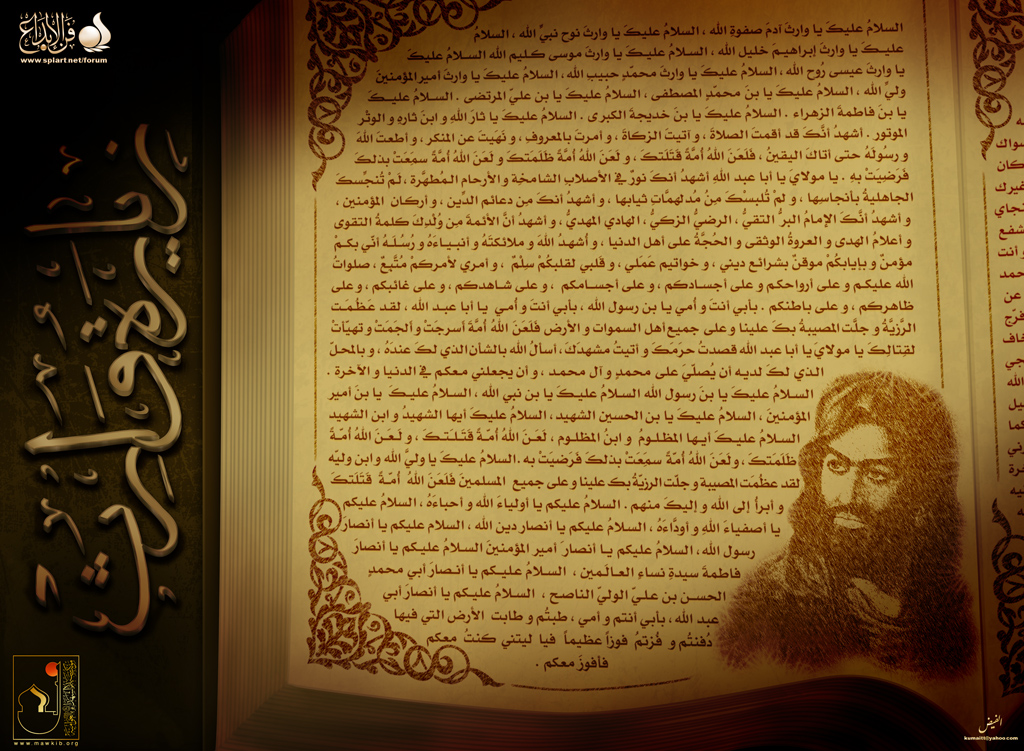 فن الإبداع
www.splart.net/forum
زيارة وارث
السلامُ عليكَ يا وارثَ آدمَ صفوةِ الله ، السلامُ عليكَ يا وارثَ نوح نبيِّ الله ، السلامُ
عليـكَ يا وارثَ إبراهيـمَ خليلِ الله ، السـلامُ عليـكَ يا وارثَ موسى كليـمِ الله السـلامُ عليكَ
يا وارثَ عيسى رُوح الله ، السلامُ عليكَ يا وارثَ محمّدٍ حبيبِ الله ، السلامُ عليكَ يا وارثَ أميرِ المؤمنينَ
وليِّ الله ، السلامُ عليكَ يا بنَ محمّدٍ المصطفى ، السلامُ عليكَ يا بن عليّ المرتضى . السـلامُ عليـكَ
يا بنَ فاطمةَ الزهراء . السلامُ عليكَ يا بنَ خديجةَ الكبرى . السلامُ عليكَ يا ثارَ اللهِ و ابنَ ثارِهِ و الوِتْر
الموتور . أشهدُ أنَّكَ قد أقمتَ الصلاةَ ، و آتيتَ الزكاةَ ، و أمرتَ بالمعروفِ ، و نَهَيْتَ عن المنكر ، و أطعتَ اللهَ
و رسُولَهُ حتى أتاكَ اليقينُ ، فَلَعَنَ اللهُ أمَّةً قَتَلَتكَ ، و لَعَنَ اللهُ أمَّةً ظلَمَتكَ و لَعَنَ اللهُ أمَّةً سمِعَتْ بذلكَ
فَرَضِيَتْ بِهِ . يا مولايَ يا أبا عبد اللهِ أشهدُ أنكَ نورٌ في الأصلاب الشامخةِ و الأرحامِ المُطهَّرة ، لَمْ تُنجِّسكَ
الجاهليةُ بأنجاسِها ، و لمْ تُلبسكَ مِنْ مُدلهمّاتِ ثيابها ، و أشهدُ أنكَ من دعائم الدِّين ، و أركان المؤمنين ،
و أشهدُ أنَّكَ الإمامُ البرُّ التقيُّ ، الرضيُّ الزكيُّ ، الهادي المهديُّ ، و أشهدُ أنَّ الأئمةَ من وُلْدِكَ كلمةُ التقوى
و أعلامُ الهدى و العروةُ الوثقى و الحُجّةُ على أهل الدنيا ، و أُشهدُ اللهَ و ملائكتَهُ و أنبـياءَهُ و رُسُـلَهُ أنّي بكمْ
مؤمنٌ و بإيابكُمْ موقنٌ بشرائع ديني ، و خواتيم عَمَلي ، و قلبي لقلبكُمْ سِلْمٌ ، و أمري لأمركمْ مُتَّبعٌ ، صلواتُ
الله عليكم و على أرواحكم و على أجسادكم ، و على أجسـامكم ، و على شاهدكم ، و على غائبكم ، و على
ظاهركم ، و على باطنكم . بأبي أنتَ و أمي يا بن رسول الله ، بأبي أنتَ و أمي يا أبا عبد الله ، لقد عَظُمَت
الرَّزيَّةُ و جلَّت المصيبةُ بكَ علينا و على جميع أهل السموات و الأرض فَلَعَنَ اللهُ أمَّةً أسرجَتْ و ألجَمَتْ و تهيّأتْ
لقتالِكَ يا مولايَ يا أبا عبد الله قصدتُ حرَمَكَ و أتيتُ مشهدَكَ ، أسألُ الله بالشأن الذي لكَ عندَهُ ، و بالمحلّ
الذي لكَ لديه أن يُصلّيَ على محمدٍ و آل محمد ، و أن يجعلني معكم في الدنيا و الآخرة .
السلامُ عليكَ يا بن رسول الله السلامُ عليكَ يا بن نبي الله ، السلامُ عليكَ يا بن أمير
المؤمنينَ ، السلامُ عليكَ يا بن الحسين الشهيد، السلامُ عليكَ أيها الشهيدُ و ابن الشهيد
السلامُ عليـكَ أيـها المظلـومُ و ابنُ المظلـوم ، لَعَـنَ اللهُ أمَّـةً قَتَـلَـتـكَ ، و لَـعَـنَ اللهُ أمّـةً
ظلَمَتكَ ، و لَعَنَ اللهُ أمّةً سمِعَتْ بذلكَ فَرَضيَتْ به .السلامُ عليكَ يا وليَّ الله و ابن وليّه
لقد عظُمَت المصيبة و جلّت الرزيّةُ بكَ علينا و على جميع المسلمين فَلَعَنَ اللهُ أمّةً قَتَلَتكَ
و أبرأُ إلى الله و إليكَ منهم . السلامُ عليكم يا أولياءَ الله و أحباءَهُ ، السلامُ عليكم
يا أصفياءَ اللهِ و أودَّاءَهُ ، السلامُ عليكم يا أنصار دين الله ، السلام عليكم يا أنصارَ
رسول الله ، السلامُ عليكم يا أنصارَ أمير المؤمنينَ السلامُ عليكم يا أنصارَ
فاطمةَ سيدةِ نساءِ العالَمين ، السلامُ عليكم يا أنصارَ أبي محمدٍ
الحسـن بن عليّ الوليّ الناصح ، السلامُ عليكم يا أنصارَ أبي
عبد الله ، بأبي أنتم و أمي ، طبتُم و طابت الأرض التي فيها
دُفنتُم و فُزتمُ فوزاً عظيماً فيا ليتني كنتُ معكم
فأفوزَ معكم .
www.mawkib.org
الفيض
kumail5@yahoo.com